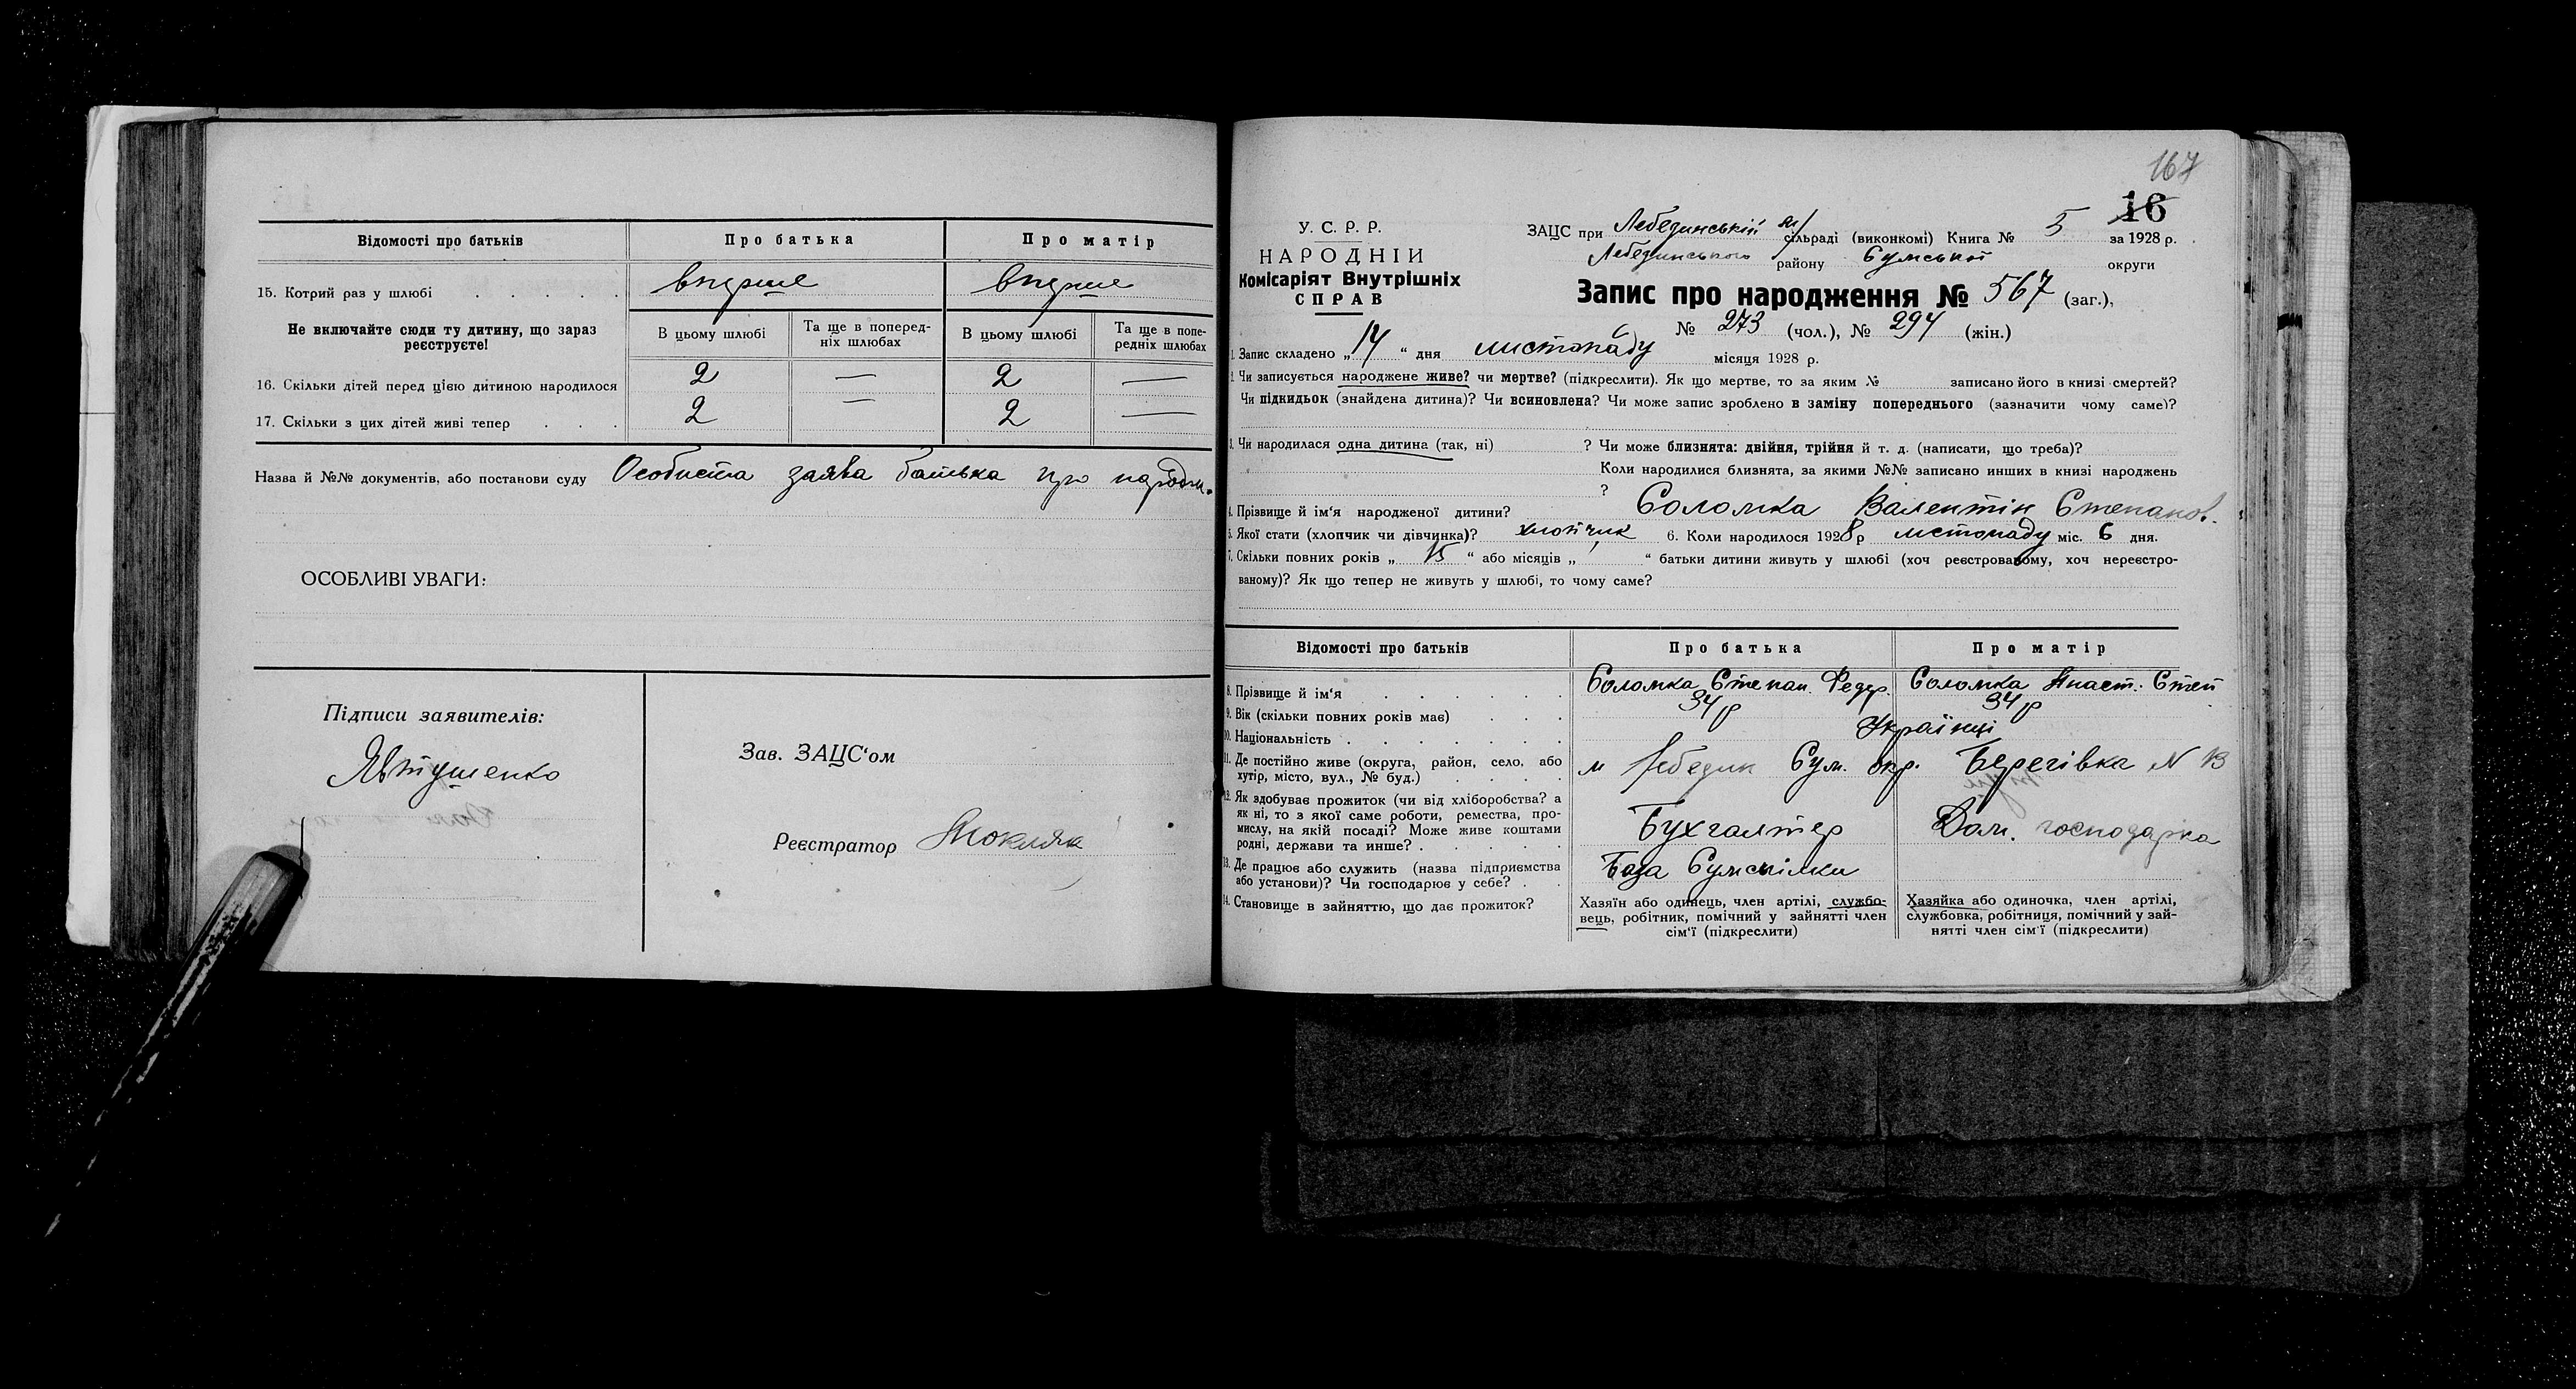 Відомості про батьків Про батька Про матір
15. Котрий раз у шлюбі . . . . . вперше вперше
Не включайте сюди ту дитину, що зараз реєструєте!
В цьому шлюбі Та ще в поперед-ніх шлюбах В цьому шлюбі Та ще в попе-редніх шлюбах
16. Скільки дітей перед цією дитиною народилося 2 — 2 —
17. Скільки з цих дітей живі тепер . . . 2 — 2 —
Назва й №№ документів, або постанови суду Особиста заява батька про народж.
ОСОБЛИВІ УВАГИ:
Підписи заявителів:
Явтушенко
Зав. ЗАЦС'ом
Реєстратор
167
16
У. С. Р. Р.
НАРОДНІЙ
Комісаріят Внутрішніх
СПРАВ
ЗАЦС при Лебединській м/ сільраді (виконкомі) Книга № 5 за 1928 р.
Лебединського району Сумської округи
Запис про народження № 567 (заг.),
№ 273 (чол.), № 294 (жін.)
1. Запис складено „14“ дня листопаду місяця 1928 р.
2. Чи записується народжене живе? чи мертве? (підкреслити). Як що мертве, то за яким № записано його в книзі смертей?
Чи підкидьок (знайдена дитина)? Чи всиновлена? Чи може запис зроблено в заміну попереднього (зазначити чому саме)?
3. Чи народилася одна дитина (так, ні) ? Чи може близнята: двійня, трійня й т. д. (написати, що треба)?
Коли народилися близнята, за якими №№ записано инших в книзі народжень
?
4. Прізвище й ім'я народженої дитини? Соломка Валентін Степанов.
5. Якої стати (хлопчик чи дівчинка)? хлопчик 6. Коли народилося 1928 р листопаду міс. 6 дня.
7. Скільки повних років „15“ або місяців „ “ батьки дитини живуть у шлюбі (хоч реєстрованому, хоч нереєстро-
ваному)? Як що тепер не живуть у шлюбі, то чому саме?
Відомості про батьків Про батька Про матір
8. Прізвище й ім'я . . . . . . Соломка Степан Федер. Соломка Анаст. Степ
9. Вік (скільки повних років має) . . . 34 р 34 р
10. Національність . . . . . . . Українці
11. Де постійно живе (округа, район, село, або
хутір, місто, вул., № буд.) . . . . м Лебедин Сум. окр. Берегівка N 13
12. Як здобуває прожиток (чи від хліборобства? а
як ні, то з якої саме роботи, ремества, про-
мислу, на якій посаді? Може живе коштами
родні, держави та инше? . . . . . Бухгалтер Дом. господарка
13. Де працює або служить (назва підприємства
або установи)? Чи господарює у себе? . . База Сумспілки
14. Становище в зайняттю, що дає прожиток?
Хазяїн або одинець, член артілі, службо-
вець, робітник, помічний у зайнятті член
сім'ї (підкреслити)
Хазяйка або одиночка, член артілі,
службовка, робітниця, помічний у зай-
нятті член сім'ї (підкреслити)